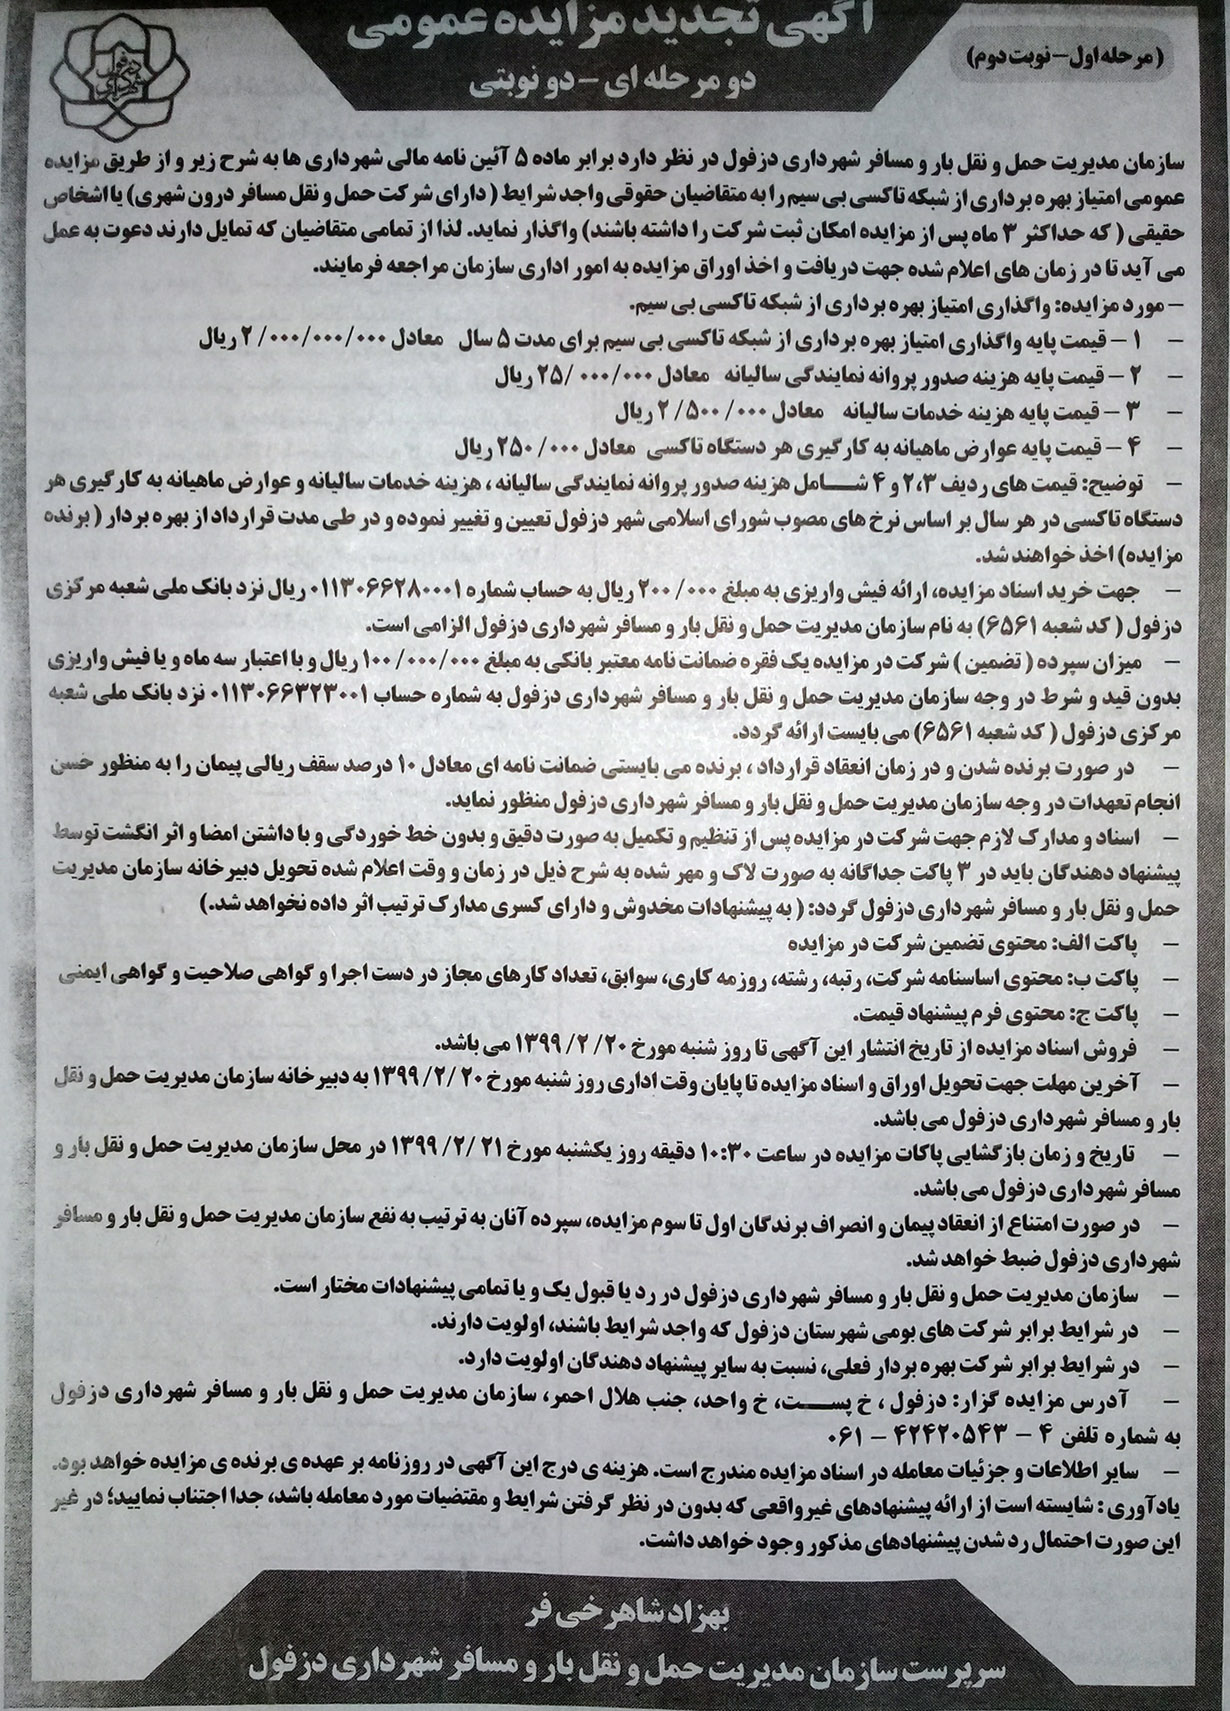 آگهی تجدید مزایده عمومی
(مرحله اول – نوبت دوم)
دو مرحله ای – دو نوبتی
سازمان مدیریت حمل و نقل بار و مسافر شهرداری دزفول در نظر دارد برابر ماده ۵ آئین نامه مالی شهرداری ها به شرح زیر و از طریق مزایده
عمومی امتیاز بهره برداری از شبکه تاکسی بی سیم را به متقاضیان حقوقی واجد شرایط ( دارای شرکت حمل و نقل مسافر درون شهری) یا اشخاص
حقیقی ( که حداکثر ۳ ماه پس از مزایده امکان ثبت شرکت را داشته باشند) واگذار نماید. لذا از تمامی متقاضیان که تمایل دارند دعوت به عمل
می آید تا در زمان های اعلام شده جهت دریافت و اخذ اوراق مزایده به امور اداری سازمان مراجعه فرمایند.
– مورد مزایده: واگذاری امتیاز بهره برداری از شبکه تاکسی بی سیم.
– ۱ – قیمت پایه واگذاری امتیاز بهره برداری از شبکه تاکسی بی سیم برای مدت ۵ سال معادل ۲/۰۰۰/۰۰۰/۰۰۰ ریال
– ۲ – قیمت پایه هزینه صدور پروانه نمایندگی سالیانه معادل ۲۵/۰۰۰/۰۰۰ ریال
– ۳ – قیمت پایه هزینه خدمات سالیانه معادل ۲/۵۰۰/۰۰۰ ریال
– ۴ – قیمت پایه عوارض ماهیانه به کارگیری هر دستگاه تاکسی معادل ۲۵۰/۰۰۰ ریال
– توضیح: قیمت های ردیف ۲،۳ و ۴ شامل هزینه صدور پروانه نمایندگی سالیانه ، هزینه خدمات سالیانه و عوارض ماهیانه به کارگیری هر
دستگاه تاکسی در هر سال بر اساس نرخ های مصوب شورای اسلامی شهر دزفول تعیین و تغییر نموده و در طی مدت قرارداد از بهره بردار ( برنده
مزایده) اخذ خواهند شد.
– جهت خرید اسناد مزایده، ارائه فیش واریزی به مبلغ ۲۰۰/۰۰۰ ریال به حساب شماره ۰۱۱۳۰۶۶۲۸۰۰۰۱ ریال نزد بانک ملی شعبه مرکزی
دزفول ( کد شعبه ۶۵۶۱) به نام سازمان مدیریت حمل و نقل بار و مسافر شهرداری دزفول الزامی است.
– میزان سپرده ( تضمین ) شرکت در مزایده یک فقره ضمانت نامه معتبر بانکی به مبلغ ۱۰۰/۰۰۰/۰۰۰ ریال و با اعتبار سه ماه و یا فیش واریزی
بدون قید و شرط در وجه سازمان مدیریت حمل و نقل بار و مسافر شهرداری دزفول به شماره حساب ۰۱۱۳۰۶۶۳۲۳۰۰۱ نزد بانک ملی شعبه
مرکزی دزفول ( کد شعبه ۶۵۶۱) می بایست ارائه گردد.
– در صورت برنده شدن و در زمان انعقاد قرارداد ، برنده می بایستی ضمانت نامه ای معادل ۱۰ درصد سقف ریالی پیمان را به منظور حسن
انجام تعهدات در وجه سازمان مدیریت حمل و نقل بار و مسافر شهرداری دزفول منظور نماید.
– اسناد و مدارک لازم جهت شرکت در مزایده پس از تنظیم و تکمیل به صورت دقیق و بدون خط خوردگی و با داشتن امضا و اثر انگشت توسط
پیشنهاد دهندگان باید در ۳ پاکت جداگانه به صورت لاک و مهر شده به شرح ذیل در زمان و وقت اعلام شده تحویل دبیرخانه سازمان مدیریت
حمل و نقل بار و مسافر شهرداری دزفول گردد: ( به پیشنهادات مخدوش و دارای کسری مدارک ترتیب اثر داده نخواهد شد.)
– پاکت الف: محتوی تضمین شرکت در مزایده
– پاکت ب: محتوی اساسنامه شرکت، رتبه، رشته، روزمه کاری، سوابق، تعداد کارهای مجاز در دست اجرا و گواهی صلاحیت و گواهی ایمنی
– پاکت ج: محتوی فرم پیشنهاد قیمت.
– فروش اسناد مزایده از تاریخ انتشار این آگهی تا روز شنبه مورخ ۱۳۹۹/۲/۲۰ می باشد.
– آخرین مهلت جهت تحویل اوراق و اسناد مزایده تا پایان وقت اداری روز شنبه مورخ ۱۳۹۹/۲/۲۰ به دبیرخانه سازمان مدیریت حمل و نقل
بار و مسافر شهرداری دزفول می باشد.
– تاریخ و زمان بازگشایی پاکات مزایده در ساعت ۱۰:۳۰ دقیقه روز یکشنبه مورخ ۱۳۹۹/۲/۲۱ در محل سازمان مدیریت حمل و نقل بار و
مسافر شهرداری دزفول می باشد.
– در صورت امتناع از انعقاد پیمان و انصراف برندگان اول تا سوم مزایده، سپرده آنان به ترتیب به نفع سازمان مدیریت حمل و نقل بار و مسافر
شهرداری دزفول ضبط خواهد شد.
– سازمان مدیریت حمل و نقل بار و مسافر شهرداری دزفول در رد یا قبول یک و یا تمامی پیشنهادات مختار است.
– در شرایط برابر شرکت های بومی شهرستان دزفول که واجد شرایط باشند، اولویت دارند.
– در شرایط برابر شرکت بهره بردار فعلی، نسبت به سایر پیشنهاد دهندگان اولویت دارد.
– آدرس مزایده گزار: دزفول ، خ پست، خ واحد، جنب هلال احمر، سازمان مدیریت حمل و نقل بار و مسافر شهرداری دزفول
به شماره تلفن ۴ – ۴۲۴۲۰۵۴۳ – ۰۶۱
– سایر اطلاعات و جزئیات معامله در اسناد مزایده مندرج است. هزینه ی درج این آگهی در روزنامه بر عهده ی برنده ی مزایده خواهد بود.
یادآوری : شایسته است از ارائه پیشنهادهای غیرواقعی که بدون در نظر گرفتن شرایط و مقتضیات مورد معامله باشد، جدا اجتناب نمایید؛ در غیر
این صورت احتمال رد شدن پیشنهادهای مذکور وجود خواهد داشت.
بهزاد شاهرخی فر
سرپرست سازمان مدیریت حمل و نقل بار و مسافر شهرداری دزفول